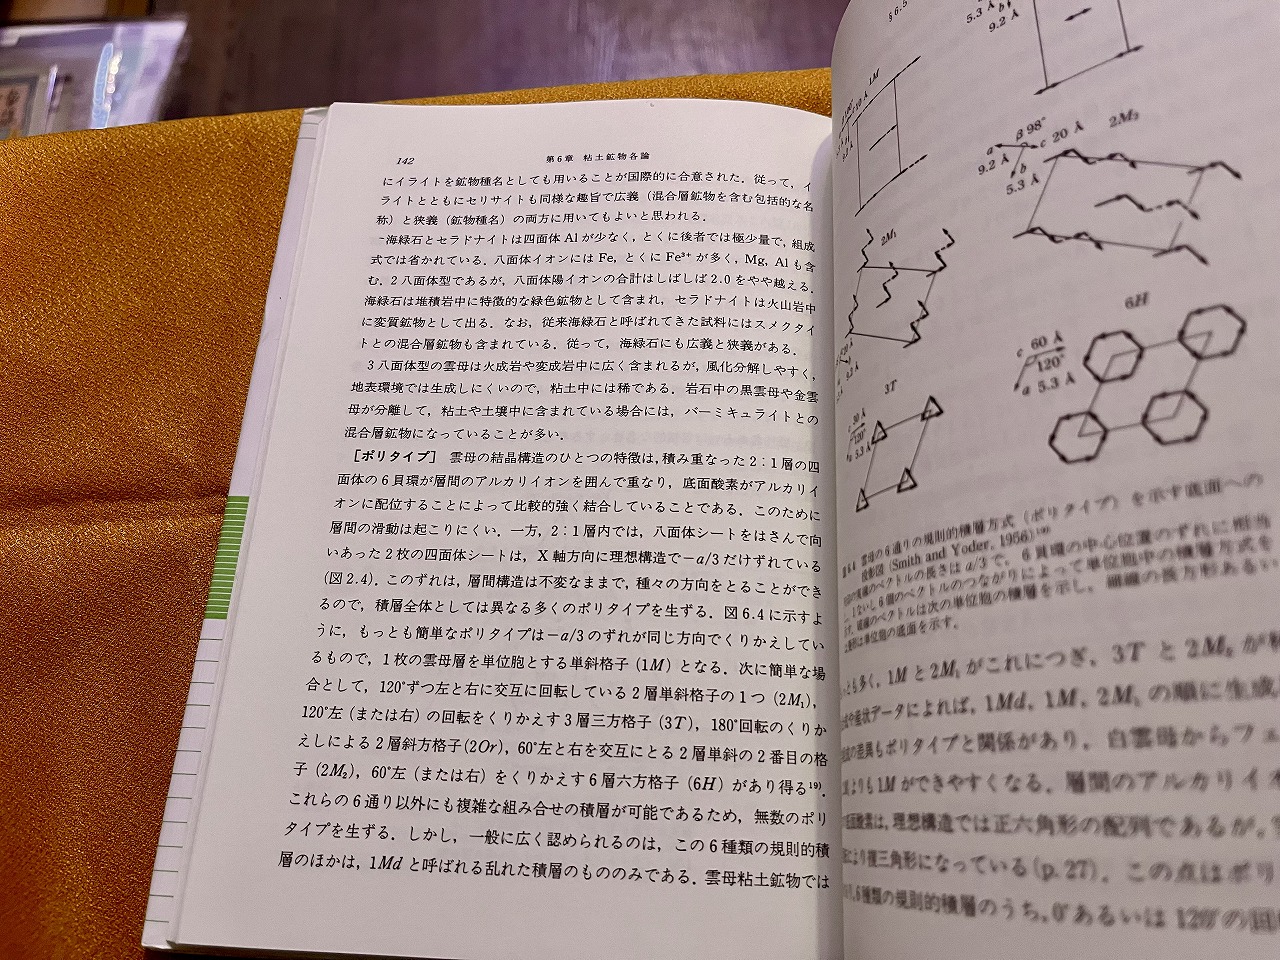 142
第6章 粘土鉱物各論
にイライトを鉱物種名としても用いることが国際的に合意された．従って，イ
ライトとともにセリサイトも同様な趣旨で広義（混合層鉱物を含む包括的な名
称）と狭義（鉱物種名）の両方に用いてもよいと思われる．
海緑石とセラドナイトは四面体 Al が少なく，とくに後者では極少量で，組成
式では省かれている．八面体イオンには Fe, とくに Fe³⁺ が多く，Mg, Al も含
む．2 八面体型であるが，八面体陽イオンの合計はしばしば 2.0 をやや越える．
海緑石は堆積岩中に特徴的な緑色鉱物として含まれ，セラドナイトは火山岩中
に変質鉱物として出る．なお，従来海緑石と呼ばれてきた試料にはスメクタイ
トとの混合層鉱物も含まれている．従って，海緑石にも広義と狭義がある．
3 八面体型の雲母は火成岩や変成岩中に広く含まれるが，風化分解しやすく，
地表環境では生成しにくいので，粘土中には稀である．岩石中の黒雲母や金雲
母が分離して，粘土や土壌中に含まれている場合には，バーミキュライトとの
混合層鉱物になっていることが多い．
［ポリタイプ］ 雲母の結晶構造のひとつの特徴は，積み重なった 2：1 層の四
面体の 6 員環が層間のアルカリイオンを囲んで重なり，底面酸素がアルカリイ
オンに配位することによって比較的強く結合していることである．このために
層間の滑動は起こりにくい．一方，2：1 層内では，八面体シートをはさんで向
いあった 2 枚の四面体シートは，X 軸方向に理想構造で −a/3 だけずれている
(図 2.4)．このずれは，層間構造は不変なままで，種々の方向をとることができ
るので，積層全体としては異なる多くのポリタイプを生ずる．図 6.4 に示すよ
うに，もっとも簡単なポリタイプは −a/3 のずれが同じ方向でくりかえしてい
るもので，1 枚の雲母層を単位胞とする単斜格子 (1M) となる．次に簡単な場
合として，120°ずつ左と右に交互に回転している 2 層単斜格子の 1 つ (2M₁)，
120°左（または右）の回転をくりかえす 3 層三方格子 (3T)，180°回転のくりか
えしによる 2 層斜方格子(2Or)，60°左と右を交互にとる 2 層単斜の 2 番目の格
子 (2M₂)，60°左（または右）をくりかえす 6 層六方格子（6H）があり得る¹⁹⁾．
これらの 6 通り以外にも複雑な組み合せの積層が可能であるため，無数のポリ
タイプを生ずる．しかし，一般に広く認められるのは，この 6 種類の規則的積
層のほかは，1Md と呼ばれる乱れた積層のもののみである．雲母粘土鉱物では
§6.5
5.3 Å b
9.2 Å
1M
β 98°
a c 20 Å 2M₂
9.2 Å b
5.3 Å
2M₁
6H
c 60 Å
120°
a 5.3 Å
3T
120°
5.3 Å
雲母の 6 通りの規則的積層方式（ポリタイプ）を示す底面への
投影図 (Smith and Yoder, 1956)
のベクトルの長さは a/3 で，6 員環の中心位置のずれに相当
1 ないし 6 個のベクトルのつながりによって単位胞中の積層方式を
のベクトルは次の単位胞の積層を示し，細線の長方形あるい
は単位胞の底面を示す．
も多く，1M と 2M₁ がこれにつぎ，3T と 2M₂ が
データによれば，1Md, 1M, 2M₁ の順に生成
の差異もポリタイプと関係があり，白雲母からフェ
よりも 1M ができやすくなる．層間のアルカリイオ
底面酸素は，理想構造では正六角形の配列であるが，
により複三角形になっている (p. 27)．この点はポリ
6 種類の規則的積層のうち，0°あるいは 120°の回